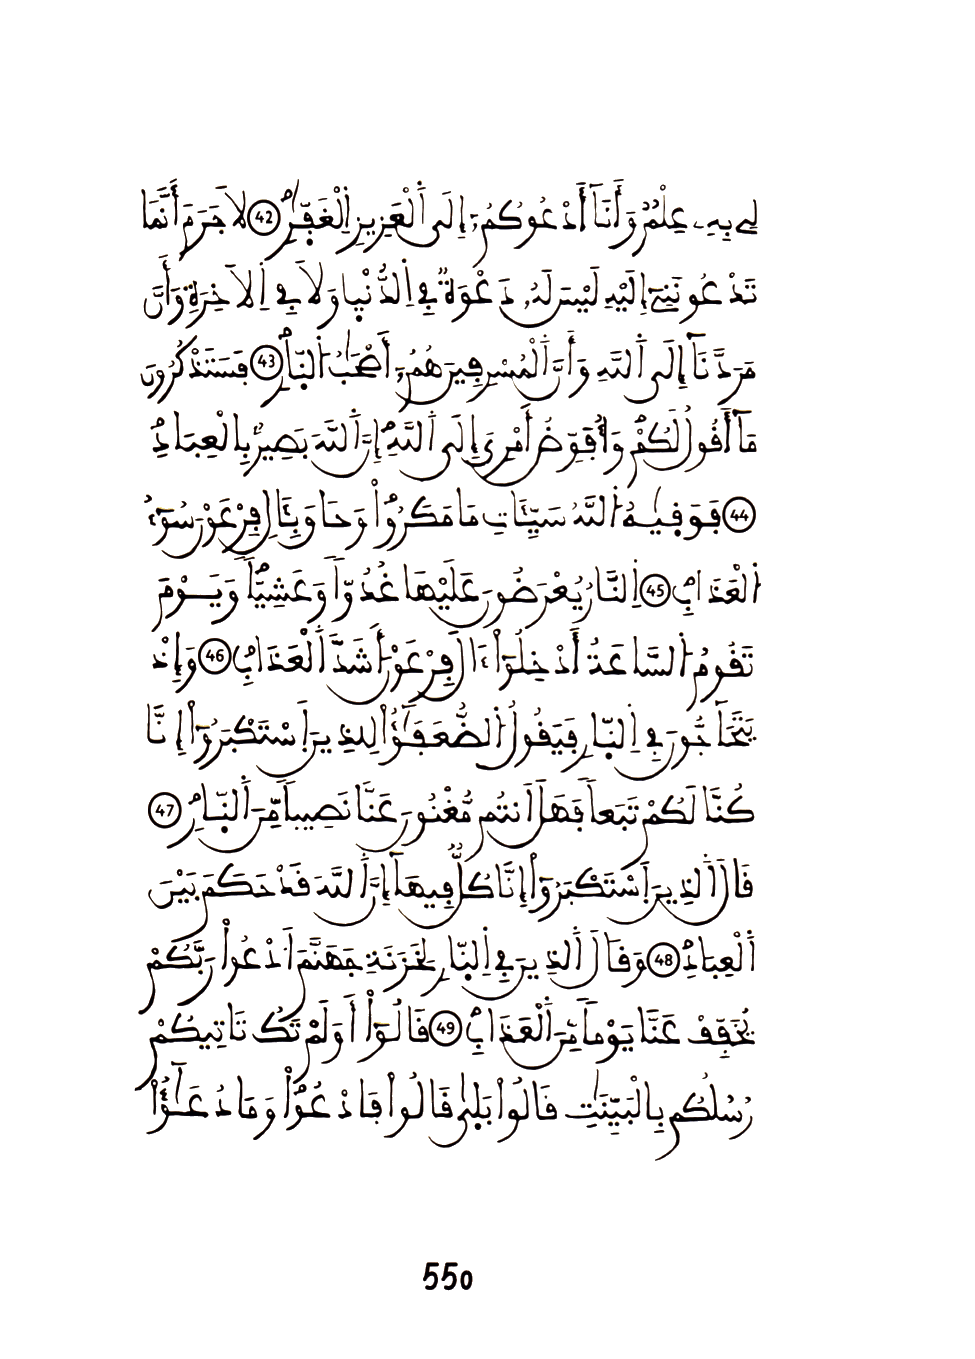 لِے بِهِۦ عِلْمٞ وَأَنَآ أَدْعُوكُمُۥٓ إِلَى اَ۬لْعَزِيزِ اِ۬لْغَفّٰ۪رِۖ 42 لَا جَرَمَ أَنَّمَا
تَدْعُونَنِےٓ إِلَيْهِ لَيْسَ لَهُۥ دَعْوَةٞ فِے اِ۬لدُّنْي۪ا وَلَا فِے اِ۬لَاخِرَةِ وَأَنَّ
مَرَدَّنَآ إِلَى اَ۬للَّهِ وَأَنَّ اَ۬لْمُسْرِفِينَ هُمُۥٓ أَصْحَٰبُ اُ۬لنّ۪ارِۖ 43 فَسَتَذْكُرُونَ
مَآ أَقُولُ لَكُمْۖ وَأُفَوِّضُ أَمْرِيَ إِلَى اَ۬للَّهِۖ إِنَّ اَ۬للَّهَ بَصِيرُۢ بِالْعِبَادِۖ
44 فَوَق۪يٰهُ اُ۬للَّهُ سَيِّـَٔاتِ مَا مَكَرُواْۖ وَحَاقَ بِـَٔالِ فِرْعَوْنَ سُوٓءُ
اُ۬لْعَذَابِۖ 45 اِ۬لنَّارُ يُعْرَضُونَ عَلَيْهَا غُدُوّاٗ وَعَشِيّاٗۖ وَيَوْمَ
تَقُومُ اُ۬لسَّاعَةُ أَدْخِلُوٓاْ ءَالَ فِرْعَوْنَ أَشَدَّ اَ۬لْعَذَابِۖ 46 وَإِذْ
يَتَحَآجُّونَ فِے اِ۬لنّ۪ارِ فَيَقُولُ اُ۬لضُّعَفَٰٓؤُاْ لِلذِينَ اَ۪سْتَكْبَرُوٓاْ إِنَّا
كُنَّا لَكُمْ تَبَعاٗ فَهَلَ اَنتُم مُّغْنُونَ عَنَّا نَصِيباٗ مِّنَ اَ۬لنّ۪ارِۖ 47
قَالَ اَ۬لذِينَ اَ۪سْتَكْبَرُوٓاْ إِنَّا كُلّٞ فِيهَآ إِنَّ اَ۬للَّهَ قَدْ حَكَمَ بَيْنَ
اَ۬لْعِبَادِۖ 48 وَقَالَ اَ۬لذِينَ فِے اِ۬لنّ۪ارِ لِخَزَنَةِ جَهَنَّمَ اَ۟دْعُواْ رَبَّكُمْ
يُخَفِّفْ عَنَّا يَوْماٗ مِّنَ اَ۬لْعَذَابِۖ 49 قَالُوٓاْ أَوَلَمْ تَكُ تَاتِيكُمْ
رُسُلُكُم بِالْبَيِّنَٰتِ قَالُواْ بَل۪يٰ قَالُواْ فَادْعُواْۖ وَمَا دُعَٰٓؤُاْ
550